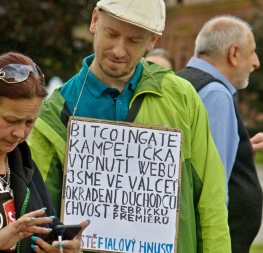 BITCOINGATE
KAMPELIČKA
VYPNUTÍ WEBŮ
JSME VE VÁLCE?
OKRADENÍ DŮCHODCŮ
CHVOST ŽEBŘÍČKU
PREMIERŮ
JEŠTĚ FIALOVÝ HNUS